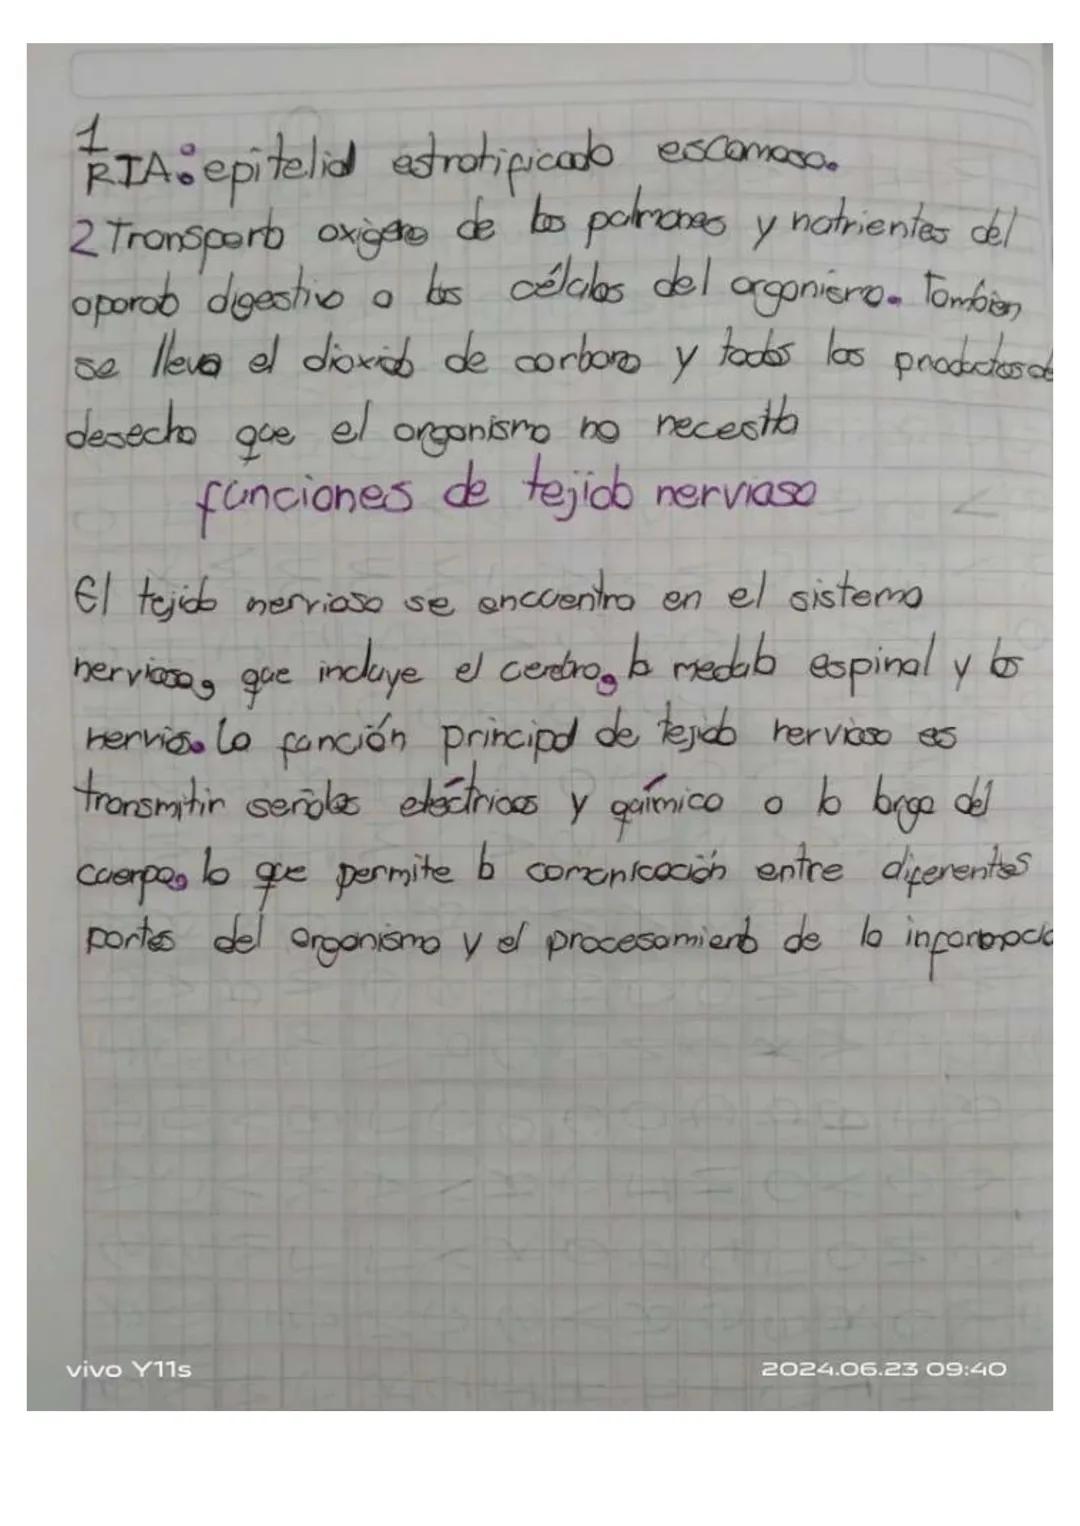 1
RTA: epitelial estratificado escamoso.
2 Transporta oxigeno de los pulmones y nutrientes del
aparato digestivo a las células del organismo. Tambien
se lleva el dioxido de carbono y todos los productos de
desecho que el organismo no necesita
funciones de tejido nervioso
El tejido nervioso se encuentra en el sistema
nervioso, que incluye el cerebro, la medula espinal y los
nervios. La función principal de tejido nervioso es
transmitir señales eléctricas y químico a lo largo del
cuerpo, lo que permite la comunicación entre diferentes
partes del organismo y el procesamiento de la informacio
vivo Y11s
2024.06.23 09:40